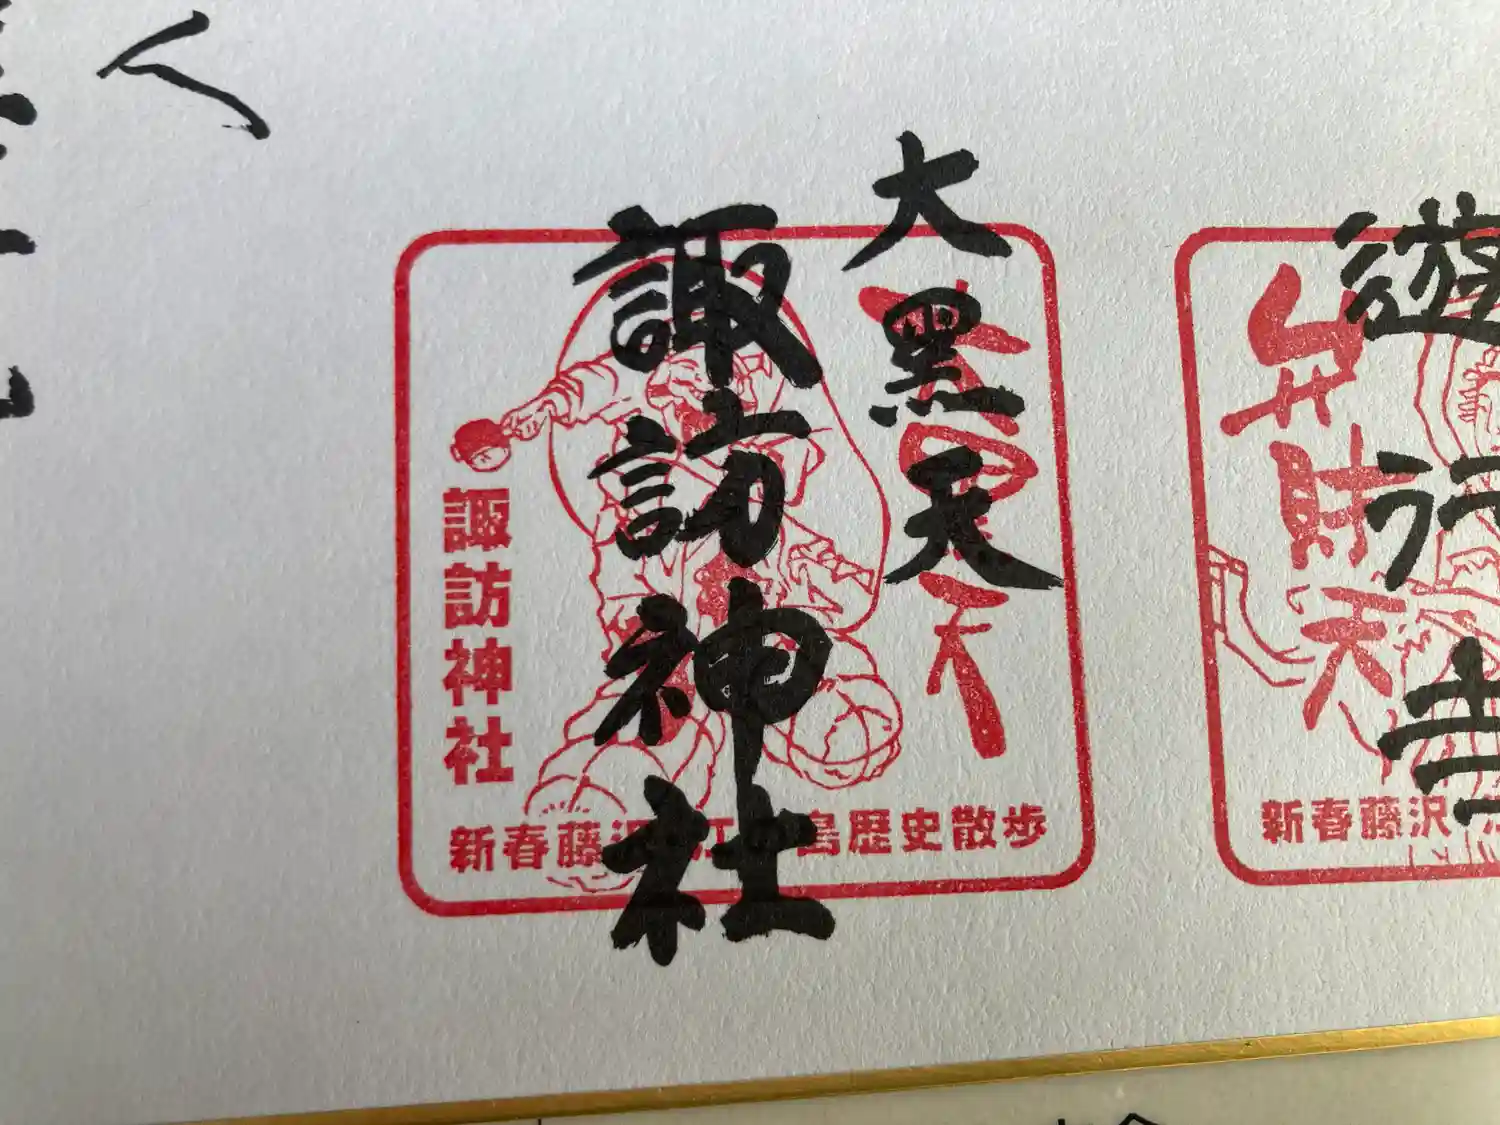 遊行寺
弁財天
新春藤沢
大黒天
大黒天
諏訪神社
諏訪神社
新春藤沢 江の島歴史散歩
人